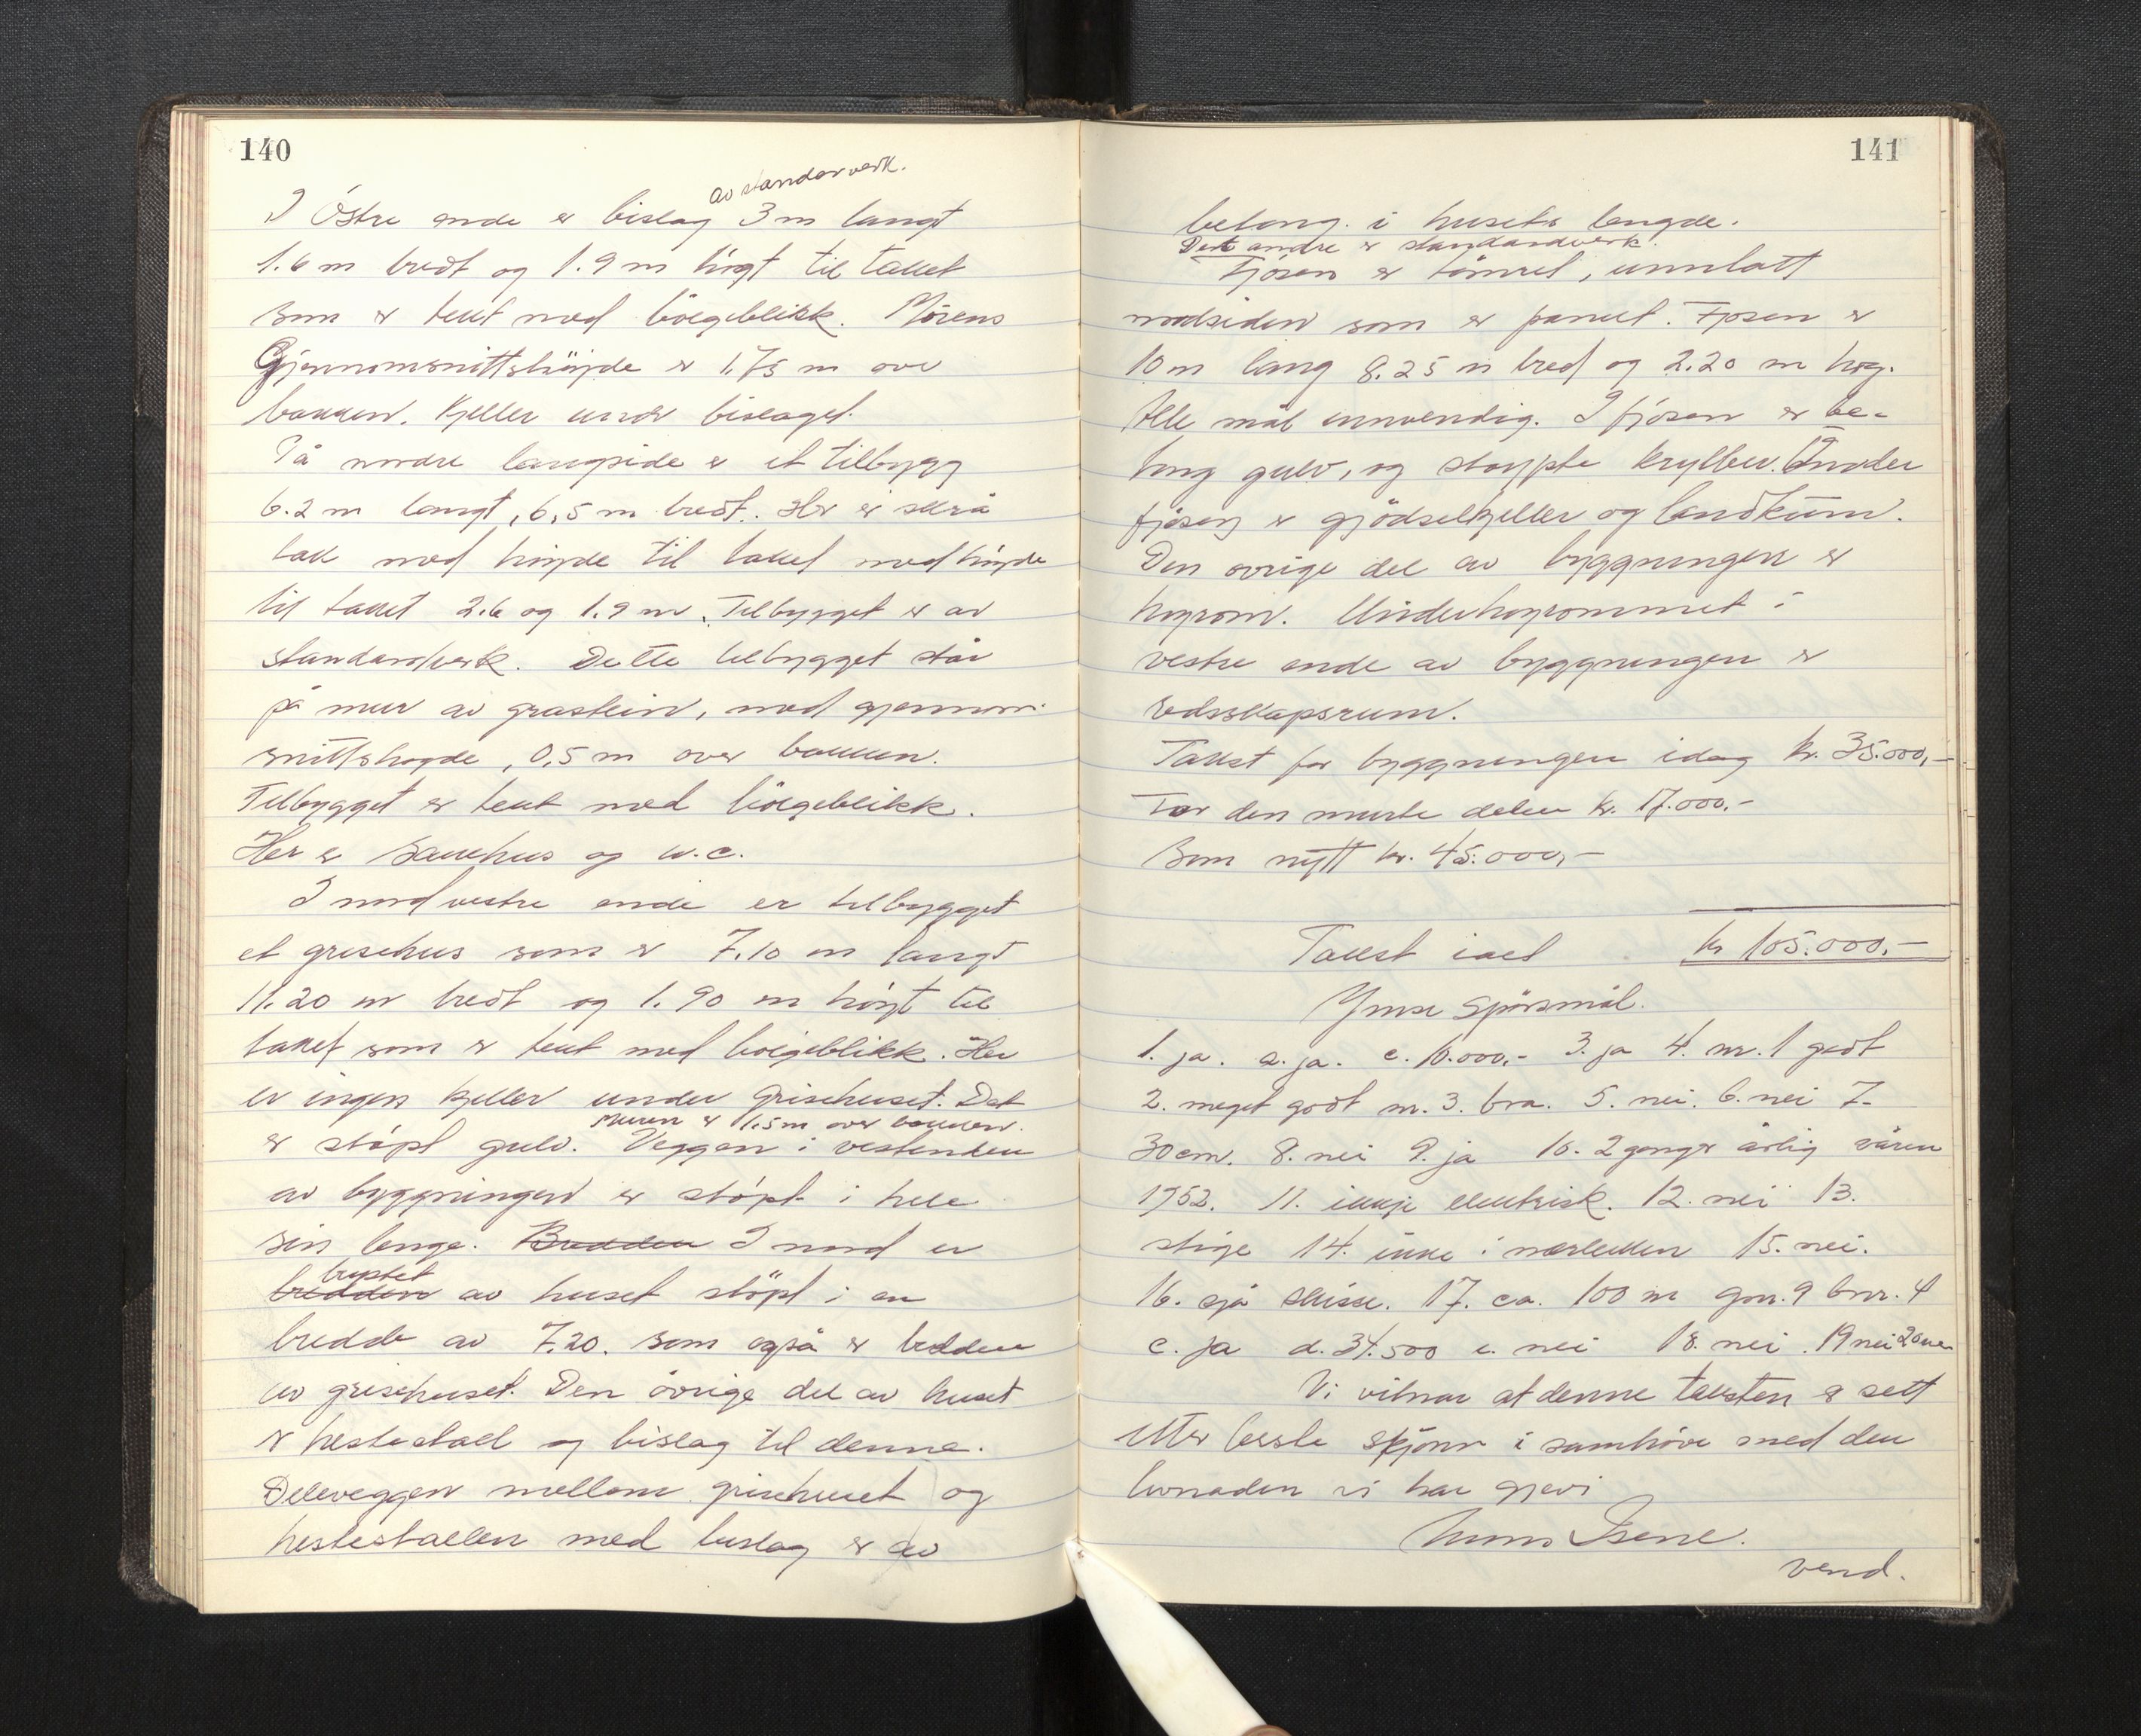 140
av standarverk.
I Östre ende er bislag 3 m langt
1.6 m bredt og 1.9 m högt til taket
som er tekt med bölgeblikk. Mörens
Gjennomsnittshöjde er 1.75 m over
bakken. Kjeller under bislaget.
På nordre langside er et tilbygg
6.2 m langt, 6,5 m bredt. Her er skrå
tak med höjde til taket med höjde
til taket 2.6 og 1.9 m. Tilbygget er av
standardverk. Dette tilbygget står
på mur av grastein, med gjennom
snittshøgde, 0,5 m over bakken.
Tilbygget er tekt med bölgeblikk.
Her er sauehus og w.c.
I nordvestre ende er tilbygget
et grisehus som er 7.10 m langt
11.20 m bredt og 1.90 m högt til
taket som er tekt med bölgeblikk. Her
er ingen kjeller under grisehuset. Det
Muren er 1.5 m over bakken.
er stöpt gulv. Veggen i vestenden
av byggningen er stöpt i hele
sin lenge. Bredden I nord er
brystet
bredden av huset stöpt i en
bredde av 7.20. som også er bredden
av grisehuset. Den övrige del av huset
er hestestall og bislag til denne.
Deleveggen mellom grisehuset og
hestestallen med bislag er av
141
betong. i husets lengde.
Det andre er standardverk.
Fjösen er tömret, unnlatt
nordsiden som er panelt. Fjosen er
10 m lang 8.25 m bred og 2.20 m høg.
Alle mål innvendig. I fjösen er be-
tong gulv, og støypte krybber. Under
fjösen er gjödselkjeller og landkum.
Den øvrige del av byggningen er
høyrom. Under høyrommet i
vestre ende av byggningen er
redsskapsrum.
Takst for byggningen idag kr. 35.000,-
For den murte delen kr. 17.000.-
Som nytt kr. 45.000,-
Takst ialt kr 105.000,-
Ymse spörsmål.
1. ja. 2. ja. c. 10.000,- 3. ja 4. nr. 1 godt
2. meget godt nr. 3. bra. 5. nei. 6. nei 7.
30 cm. 8. nei 9. ja 10. 2 ganger årlig våren
1952. 11. ikkje elektrisk. 12. nei 13.
stige 14. ikke i nærleiken 15. nei.
16. sjå skisse. 17. ca. 100 m gnr. 9 bnr. 4
c. ja d. 34.500 e. nei 18. nei. 19 nei 20 nei
Vi vitnar at denne taksten er sett
etter beste skjönn i samhöve med den
lovnaden vi har gjevi
Isene.
vend.